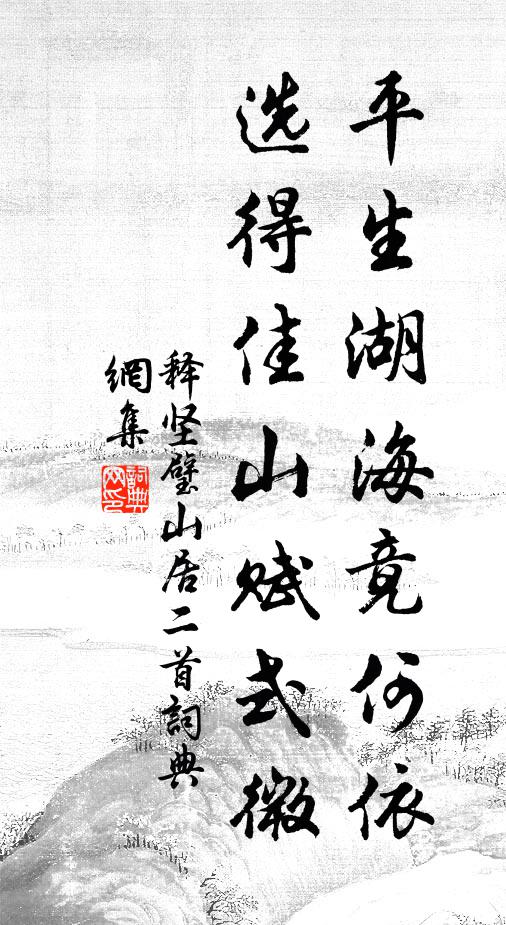 平生湖海竟何依
选得佳山赋式微
释坚璧山居二首詞典
網集
詞典
网印